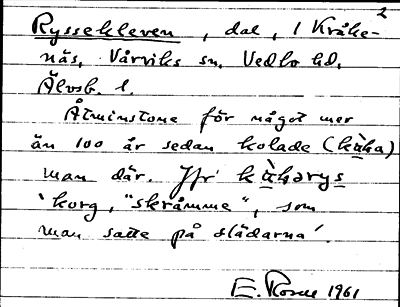 2
Ryssekleven, dal, i Kråke-
näs, Vårviks sn, Vedbo hd,
Älvsb. l.
Åtminstone för något mer
än 100 år sedan kolade (kå̀ḷa)
man där. Jfr kå̀ḷərys
'korg, "skråmme", som
man satte på slädarna'.
E. Rosell 1961